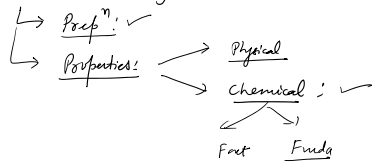 Prepⁿ:
Properties:
Physical
Chemical :
Fact Funda